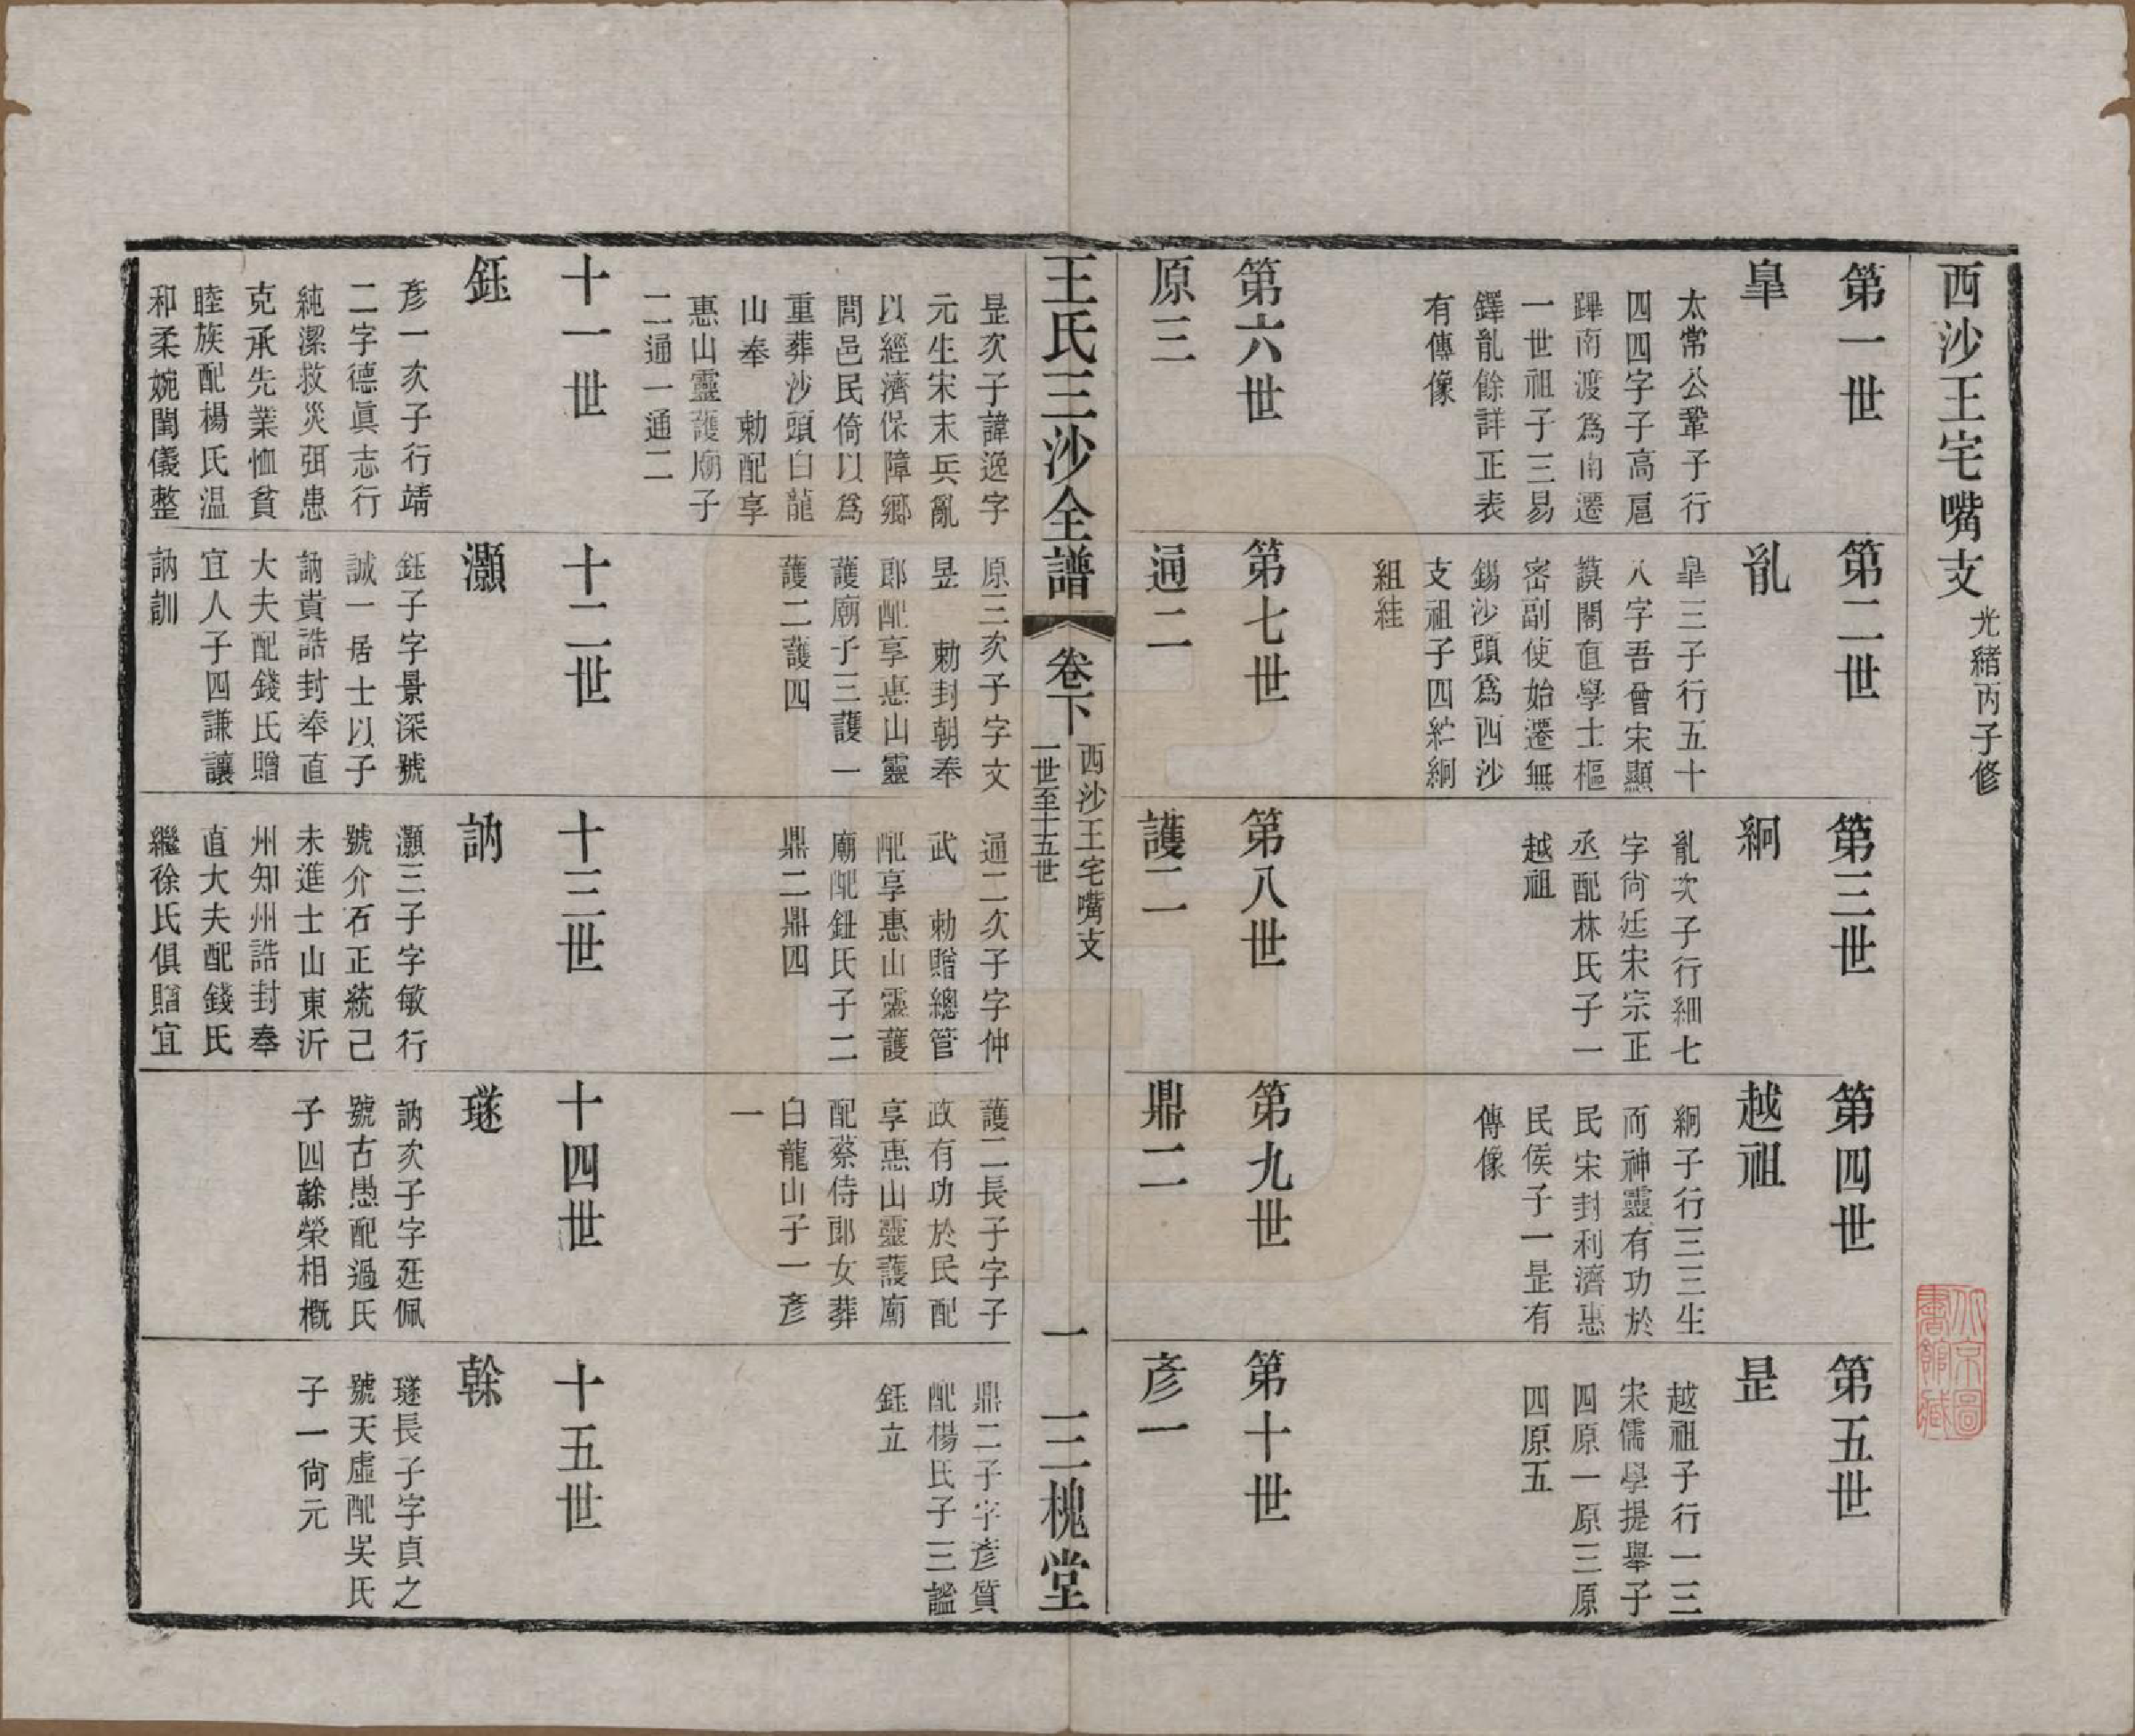 西沙王宅嘴支 光緒丙子修
第一世
皐
太常公鞏子行
四四字子高扈
蹕南渡爲南遷
一世祖子三易
鐸亂餘詳正表
有傳像
第二世
亂
皐三子行五十
八字吾曾宋顯
謨閣直學士樞
密副使始遷無
錫沙頭爲西沙
支祖子四綋絅
組絓
第三世
絅
亂次子行細七
字尙廷宋宗正
丞配林氏子一
越祖
第四世
越祖
絅子行三三生
而神靈有功於
民宋封利濟惠
民侯子一昰有
傳像
第五世
昰
越祖子行一三
宋儒學提舉子
四原一原三原
四原五
第六世
原三
昰次子諱逸字
元生宋末兵亂
以經濟保障鄉
閭邑民倚以爲
重葬沙頭白龍
山奉 勅配享
惠山靈護廟子
二通一通二
第七世
通二
原三次子字文
昱 勅封朝奉
郎配享惠山靈
護廟子三護一
護二護四
第八世
護二
通二次子字仲
武 勅贈總管
配享惠山靈護
廟配鈕氏子二
鼎二鼎四
第九世
鼎二
護二長子字子
政有功於民配
享惠山靈護廟
配蔡侍郎女葬
白龍山子一彥
一
第十世
彥一
鼎二子字彥質
配楊氏子三謐
鈺立
王氏三沙全譜 卷下 西沙王宅嘴支 一世至十五世 一 三槐堂
十一世
鈺
彥一次子行靖
二字德眞志行
純潔救災弭患
克承先業恤貧
睦族配楊氏温
和柔婉閨儀整
十二世
灝
鈺子字景深號
誠一居士以子
訥貴誥封奉直
大夫配錢氏贈
宜人子四謙讓
訥訓
十三世
訥
灝三子字敏行
號介石正統己
未進士山東沂
州知州誥封奉
直大夫配錢氏
繼徐氏俱贈宜
十四世
璲
訥次子字廷佩
號古愚配過氏
子四榦榮相槪
十五世
榦
璲長子字貞之
號天虛配吳氏
子一尙元